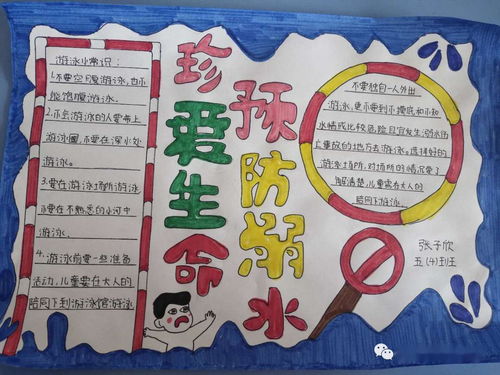 游泳小常识：
1.不要空腹游泳，也不
能饱腹游泳．
2.不会游泳的人要带上
游泳圈，不要在深水处
游泳。
3.要在游泳场所游泳
不要在不熟悉的小河中
游泳．
4.游泳前要一些准备
活动，儿童要在大人的
陪同下到游泳馆游泳
珍爱生命
预防溺水
不要独自一人外出
游泳，更不要到不摸底和不知
水情或比较危险且宜发生溺水伤
亡事故的地方去游泳。选择好的
游泳场所，对场所的情况要了
解清楚，儿童需在大人的
陪同下游泳．
张子欣
五(4)班